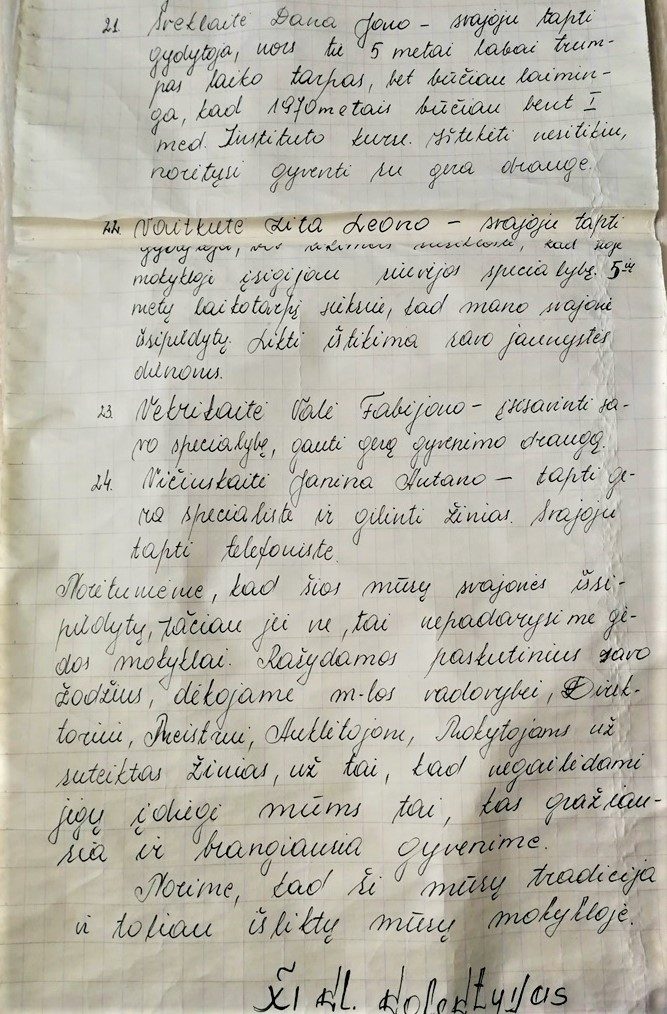 21. Sveklaitė Dana Jono – svajoju tapti
gydytoja, nors tie 5 metai labai trum-
pas laiko tarpas, bet būčiau laimin-
ga, kad 1970 metais būčiau bent I
med. Instituto kurse. Ištekėti nesitikiu,
norėtųsi gyventi su gera drauge.
22. Vaitkutė Zita Leono – svajoju tapti
kad šioje
mokykloje įsigijau siuvėjos specialybę. 5ių
metų laikotarpį sieksiu, kad mano svajonė
išsipildytų. Likti ištikima savo jaunystės
dienoms.
23. Vetrikaitė Valė Fabijono – įsisavinti sa-
vo specialybę, gauti gerą gyvenimo draugą.
24. Vičiuskaitė Janina Antano – tapti ge-
ra specialiste ir gilinti žinias. Svajoju
tapti telefoniste.
Norėtumėme, kad šios mūsų svajonės išsi-
pildytų, tačiau jei ne, tai nepadarysime gė-
dos mokyklai. Rašydamos paskutinius savo
žodžius, dėkojame m-los vadovybei, Direk-
toriui, Meistrui, Auklėtojom, Mokytojams už
suteiktas žinias, už tai, kad negailėdami
jėgų įdiegė mums tai, kas gražiau-
sia ir brangiausia gyvenime.
Norime, kad ši mūsų tradicija
ir toliau išliktų mūsų mokykloje.
XI kl. kolektyvas